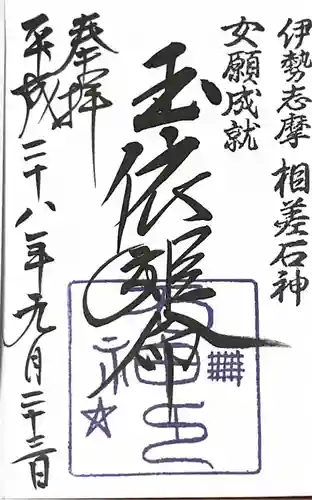 伊勢志摩 相差石神
女願成就
玉依姫命
奉拝
平成二十八年元月二十三日